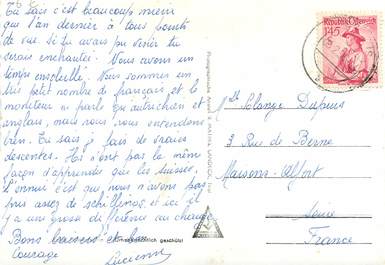 Tu sais c'est beaucoup mieux
que l'an dernier à tous points
de vue. Si tu avais pu venir tu
serais enchantée. Nous avons un
temps ensoleillé. Nous sommes un
très petit nombre de français, et le
moniteur ne parle qu'autrichien et
anglais, mais nous nous entendons
bien. Tu sais je fais de vraies
descentes. Ils n'ont pas la même
façon d'apprendre que les Suisses.
L'ennui c'est que nous n'avons pas
pris assez de schillings, et ici il
y a une grosse différence au change
Bons baisers et bon
Courage
Lucienne
Republik Österreich
1.45
Mlle Solange Dupuis
3 Rue de Berne
Maisons-Alfort
Seine
France